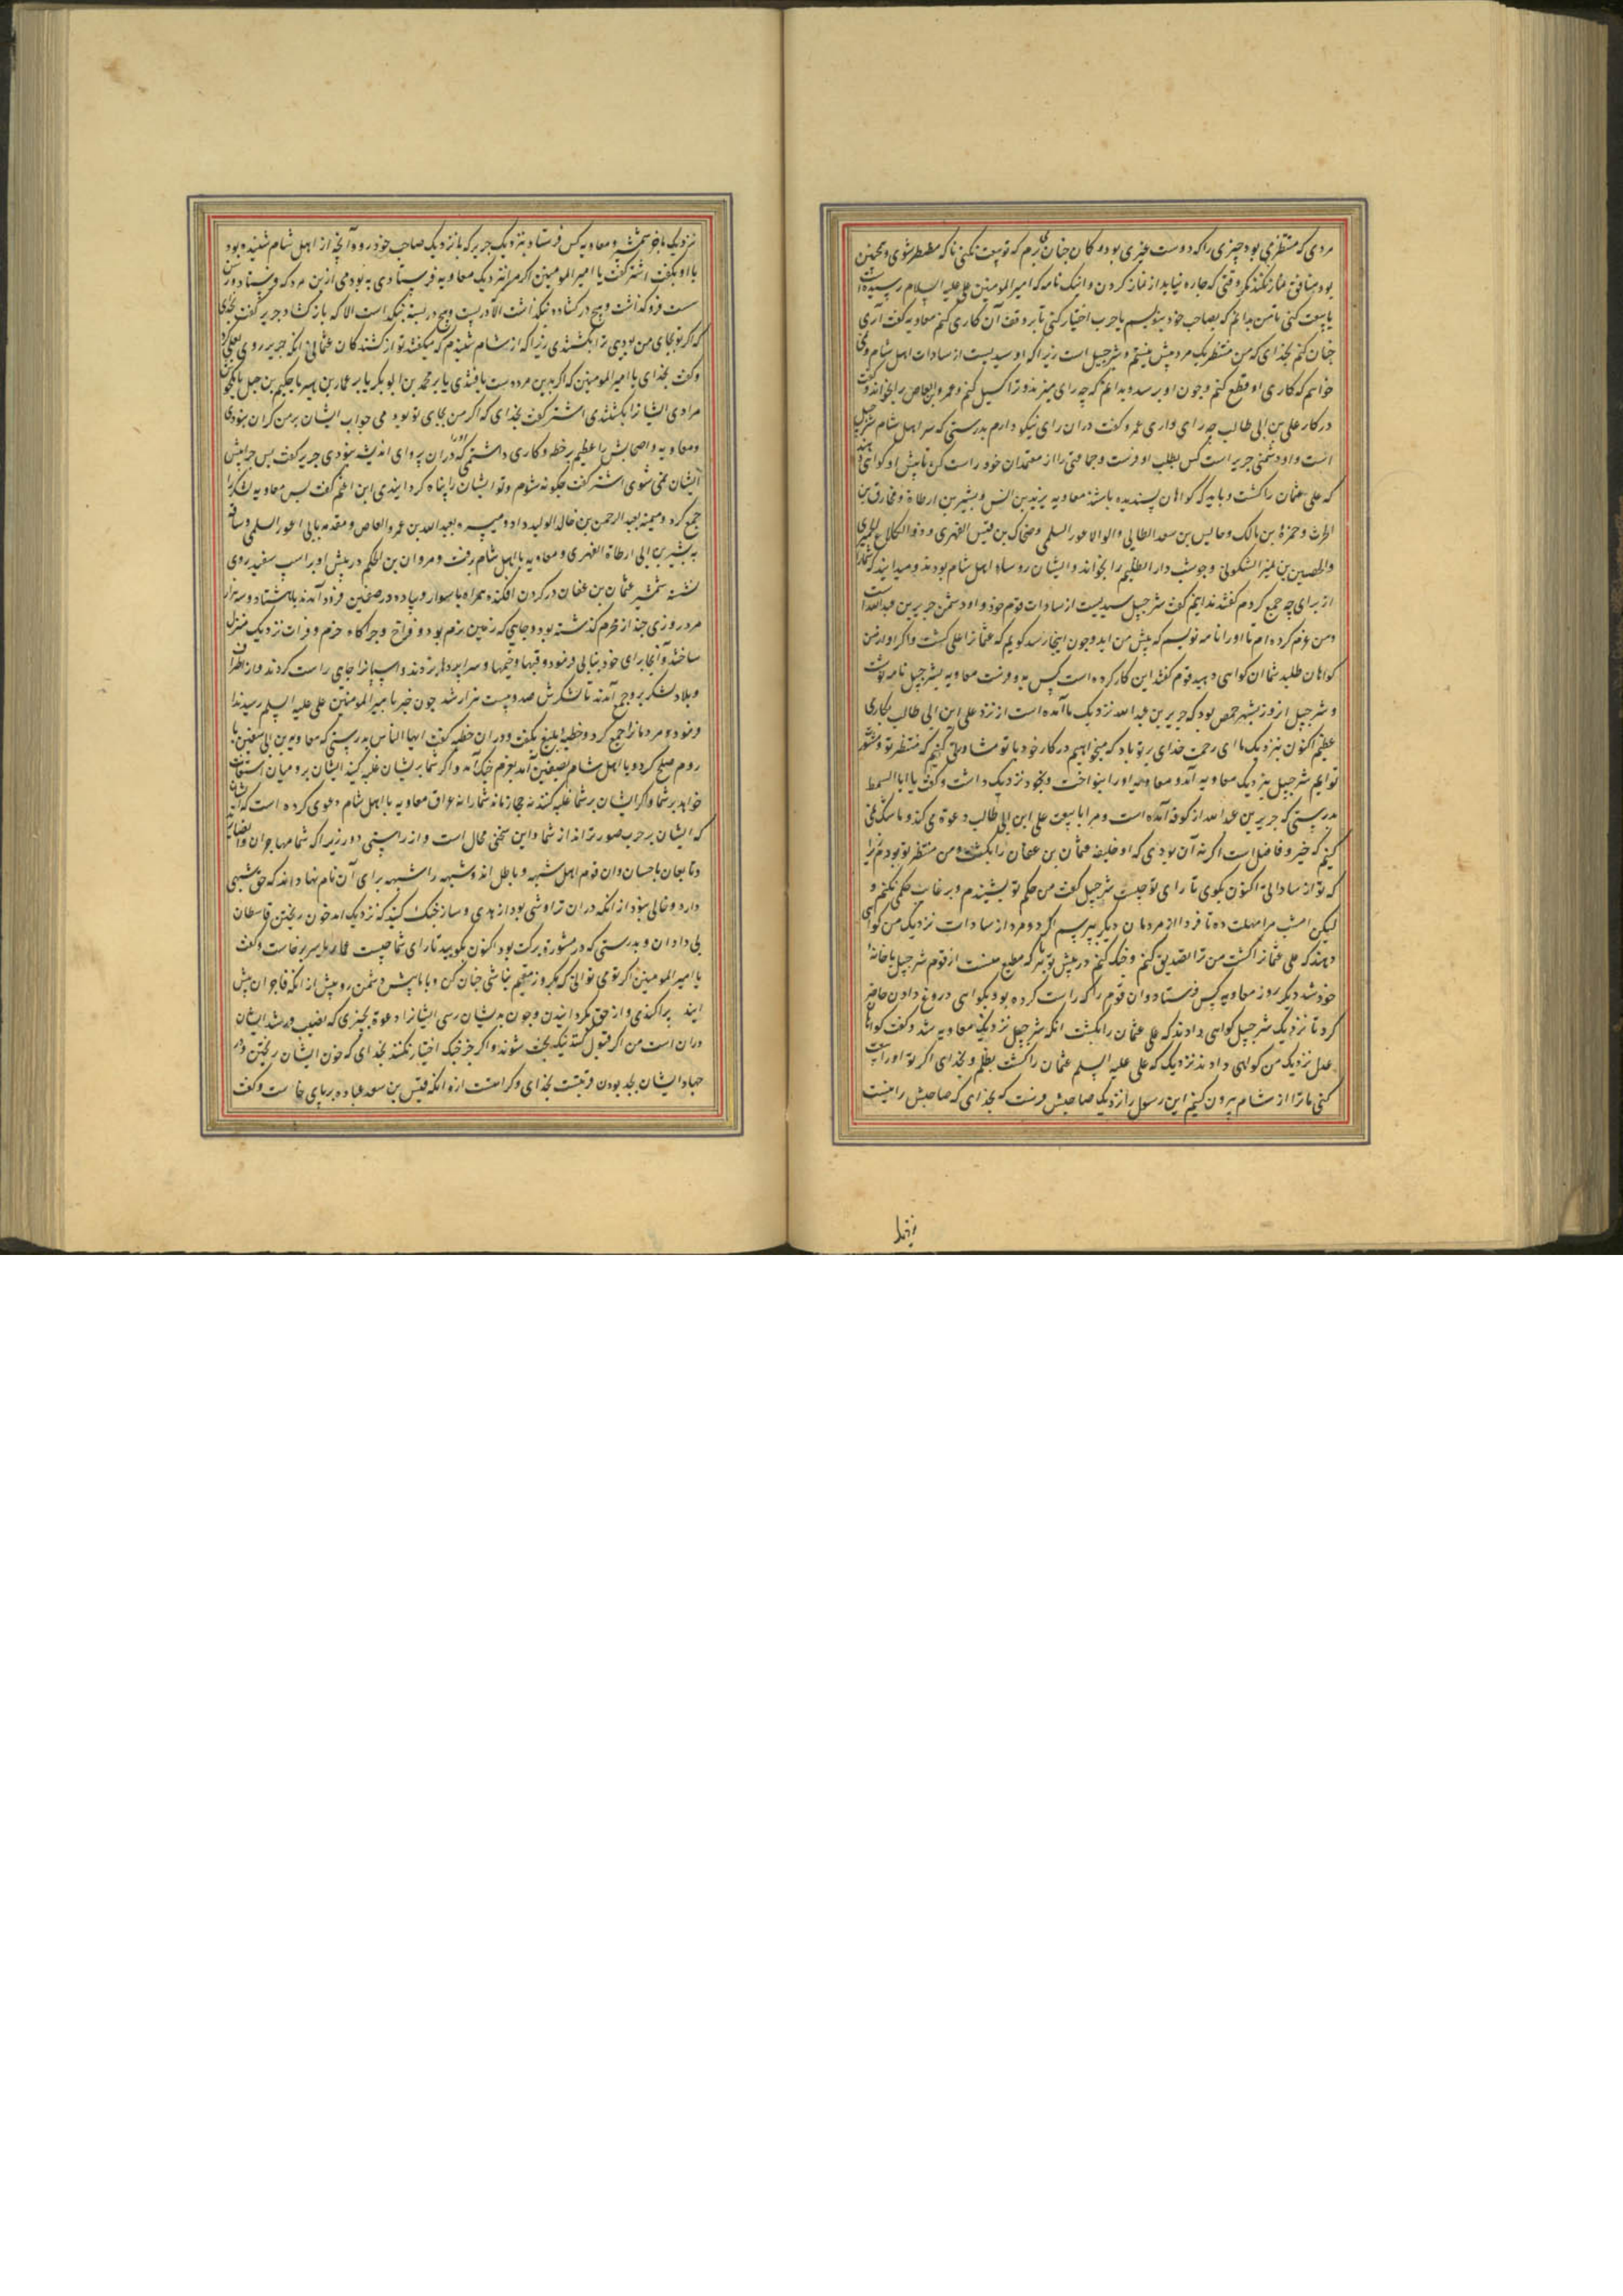 مردی که منتظر می بود چیزی را که دوست عزیزی بود و کان چنان می برم که تو بیعت نکنی تا که مضطر شوی و همچنین
بود منافق نماز نکند مگر وقتی که چاره نیابد از نماز کردن و اینک نامه که امیرالمومنین علی علیه السلام رسیده است
یا بیعت کنی تا من بدانم که بصاحب خود بنویسم یا حرب اختیار کنی تا بر وفق آن کاری کنم معاویه گفت آری
چنان کنم بخدای که من منتظر یک مرد پیش نیستم و شرجیل است زیرا که او سیدیست از سادات اهل شام و می
خواهم که کاری او قطع کنم و چون او برسد و بدانم که چه رای میزند و ترا کسیل کنم و عمرو بن العاص را بخواند و گفت
در کار علی بن ابی طالب چه رای داری عمرو گفت دران رای نیکو دارم بدرستی که سر اهل شام شرجیل
است و او دشمن جریر است کس بطلب او فرست و جماعتی را از معتمدان خود راست کن تا پیش او کواهی دهند
که علی عثمان را کشت و باید که کواهان پسندیده باشند معاویه یزید بن انس و بشیر بن ارطاة و مخارق بن
الحرث و حمزة بن مالک و حابس بن سعد الطایی و ابو الاعور السلمی و ضحاک بن قیس الفهری و ذو الکلاع الحمیری
والحصین بن نمیر السکونی و حوشب دار الظلیم را بخواند و ایشان روساء اهل شام بودند و میدانید که شما را
از برای چه جمع کردم گفتند ندانیم گفت شرجیل سیدیست از سادات قوم خود و او دشمن جریر بن عبدالله است
و من عزم کرده ام تا او را نامه نویسم که پیش من اید و چون اینجا رسد کویم که عثمانرا علی کشت و اگر او از من
کواهان طلبد شما ان کواهی دهید قوم گفتند این کار کرده است پس معاویه بشرجیل نامه نوشت
و شرجیل از وز بشهر حمص بود که جریر بن عبدالله نزدیک ما آمده است از نزد علی ابن ابی طالب بکاری
عظیم اکنون بنزدیک ما ای رحمت خدای بر تو باد که میخواهیم در کار خود با تو مشاورتی کنیم که منتظر تو و مشورت
توایم شرجیل بنزدیک معاویه آمد و معاویه او را بنواخت و بخود نزدیک داشت و گفت یا ابا السمط
بدرستی که جریر بن عبدالله از کوفه آمده است و مرا با بیعت علی ابن ابی طالب دعوة می کند و ما شک نمی
کنیم که خیر و فاضل است اگر نه آن بودی که او خلیفه عثمان بن عفان را بکشت و من منتظر تو بودم زیرا
که تو از سادات اکنون بکوی تا رای تو چیست شرجیل گفت من حکم تو بشنیدم و بر غایب حکمی نکنم و
لیکن امشب مرا مهلت ده تا فردا از مردمان دیگر بپرسم اگر دو مرد از سادات نزدیک من کواهی
دهند که علی عثمانرا کشت من ترا تصدیق کنم و جنگ کنم در پیش تو بهر که مطیع منست از قوم شرجیل با خانه
خود شد دیگر روز معاویه کس فرستاد وان قوم را که راست کرده بود بکواهی دروغ دادن حاضر
کرد تا نزدیک شرجیل کواهی دادند که علی عثمان را بکشت انکه شرجیل نزدیک معاویه شد و گفت کواهان
عدل نزدیک من کواهی دادند نزدیک که علی علیه السلم عثمان را کشت بظلم و بخدای اگر تو او را بیعت
کنی ما ترا از شام بیرون کنیم این رسول را نزدیک صاحبش فرست که بخدای که صاحبش را نیست
نزدیک ما جز شمشیر و معاویه کس فرستاد بنزدیک جریر که با نزدیک صاحب خود رو و آنچه از اهل شام شنیده بود
با او بگفت اشتر گفت یا امیر المومنین اگر مرا بنزدیک معاویه فرستادی به بودمی ازین مرد که فرستاد و رسن
سست فرو گذاشت و هیچ در کشاده نگذاشت الا در بست و هیچ در بسته نگذاشت الا که باز کشاد جریر گفت بخدای
که اگر تو بجای من بودی ترا بکشتندی زیرا که از شام شنیدم که میگفتند تو از کشندگان عثمانی انکه جریر روی بعلی کرد
و گفت بخدای یا امیر المومنین که اگر بدین مرد دست یافتندی یا بر محمد بن ابو بکر یا بر عمار بن یاسر یا حکیم بن جبل یا مکشوح
مرادی ایشانرا بکشتندی اشتر گفت بخدای که اگر من بجای تو بودمی جواب ایشان بر من کران نبودی
و معاویه و اصحابش را عظیم بر خطه و کاری داشتمی که او را دران پروای اندیشه نبودی جریر گفت پس چرا پیش
ایشان نمی شوی اشتر گفت چگونه شوم و تو ایشان را پناه گردانیدی ابن اعثم گفت پس معاویه لشکر را
جمع کرد و میمنه بعبد الرحمن بن خالد الولید داد و میسره بعبد الله بن عمرو العاص و مقدمه بابی اعور السلمی و ساقه
به بشیر بن ابی ارطاة الفهری و معاویه با اهل شام رفت و مروان بن الحکم در پیش او بر اسپ سفید روی
نشسته شمشیر عثمان بن عفان در گردن افکنده همراه با سوار و پیاده در صفین فرود آمدند با هشتاد و سه هزار
مرد روزی چند از محرم گذشته بود و جایی که زمین نرم بود و فراخ و چراگاه خرم و فرات نزدیک منزل
ساختند و آنجا برای خود بنایی فرمود و قبها و خیمها و سراپردها بزدند و اسپانرا جای راست کردند و از اطراف
و بلاد لشکر برو جمع آمدند تا لشکرش صد و بیست هزار شد چون خبر بامیر المومنین علی علیه السلم رسید ندا
فرمود و مردمانرا جمع کرد و خطبه ابلیغ بگفت و دران خطبه گفت ایها الناس بدرستی که معاویه بن ابی سفین با
روم صلح کرد و با اهل شام بصفین آمد بعزم جنگ آمد و اگر شما بریشان غلبه کنید ایشان بر و میان استعانت
خواهد بر شما و اگر ایشان بر شما غلبه کنند نه حجاز ماند شما را نه عراق معاویه با اهل شام دعوی کرده است که ایشان
که ایشان بر حرب صبورتر اند از شما و این سخن محال است و از راستی دور زیرا که شما مهاجران و انصاراید
و تابعان باحسان وان قوم اهل شبهه و باطل اند و شبهه را شبهه برای آن نام نهاده اند که حق شبهی
دارد و خالی نبود از انکه دران تراوشی بود از هدی و ساز جنگ کنید که نزدیک امد خون ریختن قاسطان
بی دادان و بدرستی که در مشورة برکت بود اکنون بگویید تا رای شما چیست عمار یاسر برخاست و گفت
یا امیر المومنین اگر تو می توانی که یکروز مقیم نباشی چنان کن و با ما پیش دشمن رو پیش از انکه فاجران پیش
ایند پراکندی و از حق بگردانیدن و چون بدیشان رسی ایشانرا دعوة بچیزی که نصیب و رشد ایشان
دران است من اگر قبول کنند نیک بخت شوند و اگر جز جنگ اختیار نکنند بخدای که خون ایشان ریختن و در
جهاد ایشان بجد بودن قربتست بخدای و کرامت ازو انکه قیس بن سعد عباده بر پای خاست و گفت